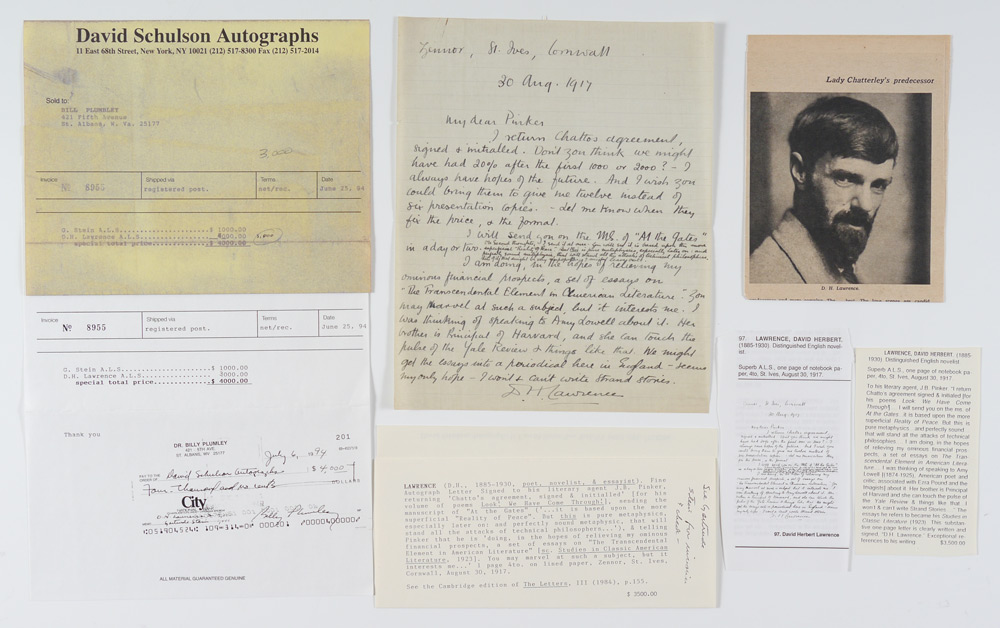 David Schulson Autographs
11 East 68th Street, New York, NY 10021 (212) 517-8300 Fax (212) 517-2014
Sold to:
BILL PLUMLEY
421 Fifth Avenue
St. Albans, W. Va. 25177
3,000
Invoice
Shipped via
Terms
Date
No 8955
registered post.
net/rec.
June 25, 94
G. Stein A.L.S. $ 1000.00
D.H. Lawrence A.L.S. 3000.00
special total price $ 4000.00
Invoice
Shipped via
Terms
Date
No 8955
registered post.
net/rec.
June 25, 94
G. Stein A.L.S. $ 1000.00
D.H. Lawrence A.L.S. 3000.00
special total price $ 4000.00
Thank you
DR. BILLY PLUMLEY
ST. ALBANS, WV 25177
201
July 6, 1994
PAY TO THE ORDER OF David Schulson Autographs $ 4,000
Four thousand and no cents DOLLARS
City
Billy Plumley
ALL MATERIAL GUARANTEED GENUINE
Zennor, St. Ives, Cornwall
30 Aug. 1917
My dear Pinker
I return Chattos agreement,
signed & initialled. Don't you think we might
have had 20% after the first 1000 or 2000? - I
always have hopes of the future. And I wish you
could bring them to give me twelve instead of
six presentation copies. - Let me know when they
fix the price, & the format.
I will send you on the MS. of "At the Gates"
in a day or two.
I am doing, in the hopes of relieving my
ominous financial prospects, a set of essays on
"The Transcendental Element in American Literature". You
may marvel at such a subject, but it interests me. I
was thinking of speaking to Amy Lowell about it. Her
brother is Principal of Harvard, and she can touch the
pulse of the Yale Review & things like that. We might
get the essays into a periodical here in England - seems
my only hope - I won't & can't write Strand stories.
D. H. Lawrence
LAWRENCE (D.H., 1885-1930, poet, novelist, & essayist). Fine
Autograph Letter Signed to his literary agent J.B. Pinker,
returning 'Chatto's agreement, signed & initialled' [for his
volume of poems Look! We Have Come Through!], sending the
manuscript of "At the Gates" ('...it is based upon the more
superficial "Reality of Peace". But this is pure metaphysic,
especially later on: and perfectly sound metaphysic, that will
stand all the attacks of technical philosophers...'), & telling
Pinker that he is 'doing, in the hopes of relieving my ominous
financial prospects, a set of essays on "The Transcendental
Element in American Literature" [sc. Studies in Classic American
Literature, 1923]. You may marvel at such a subject, but it
interests me...' 1 page 4to. on lined paper, Zennor, St. Ives,
Cornwall, August 30, 1917.
See the Cambridge edition of The Letters, III (1984), p.155.
$ 3500.00
Lady Chatterley's predecessor
D. H. Lawrence.
97. LAWRENCE, DAVID HERBERT.
(1885-1930). Distinguished English novel-
ist.
Superb A.L.S., one page of notebook pa-
per, 4to, St. Ives, August 30, 1917.
97. David Herbert Lawrence
LAWRENCE, DAVID HERBERT. (1885-
1930). Distinguished English novelist
Superb A.L.S., one page of notebook pa-
per, 4to, St. Ives, August 30, 1917.
To his literary agent, J.B. Pinker, "I return
Chatto's agreement signed & initialed [for
his poems Look We Have Come
Through]... I will send you on the ms. of
At the Gates. It is based upon the more
superficial Reality of Peace. But this is
pure metaphysics...and perfectly sound
that will stand all the attacks of technical
philosophies... I am doing, in the hopes
of relieving my ominous financial pros-
pects, a set of essays on The Tran-
scendental Element in American Litera-
ture... I was thinking of speaking to Amy
Lowell [(1874-1925). American poet and
critic, associated with Ezra Pound and the
Imagists] about it. Her brother is Principal
of Harvard and she can touch the pulse of
the Yale Review & things like that. I
won't & can't write Strand Stories." The
essays he refers to became his Studies in
Classic Literature (1923). This substan-
tive one page letter is clearly written and
signed, "D.H. Lawrence." Exceptional ref-
erences to his writing. $3,500.00